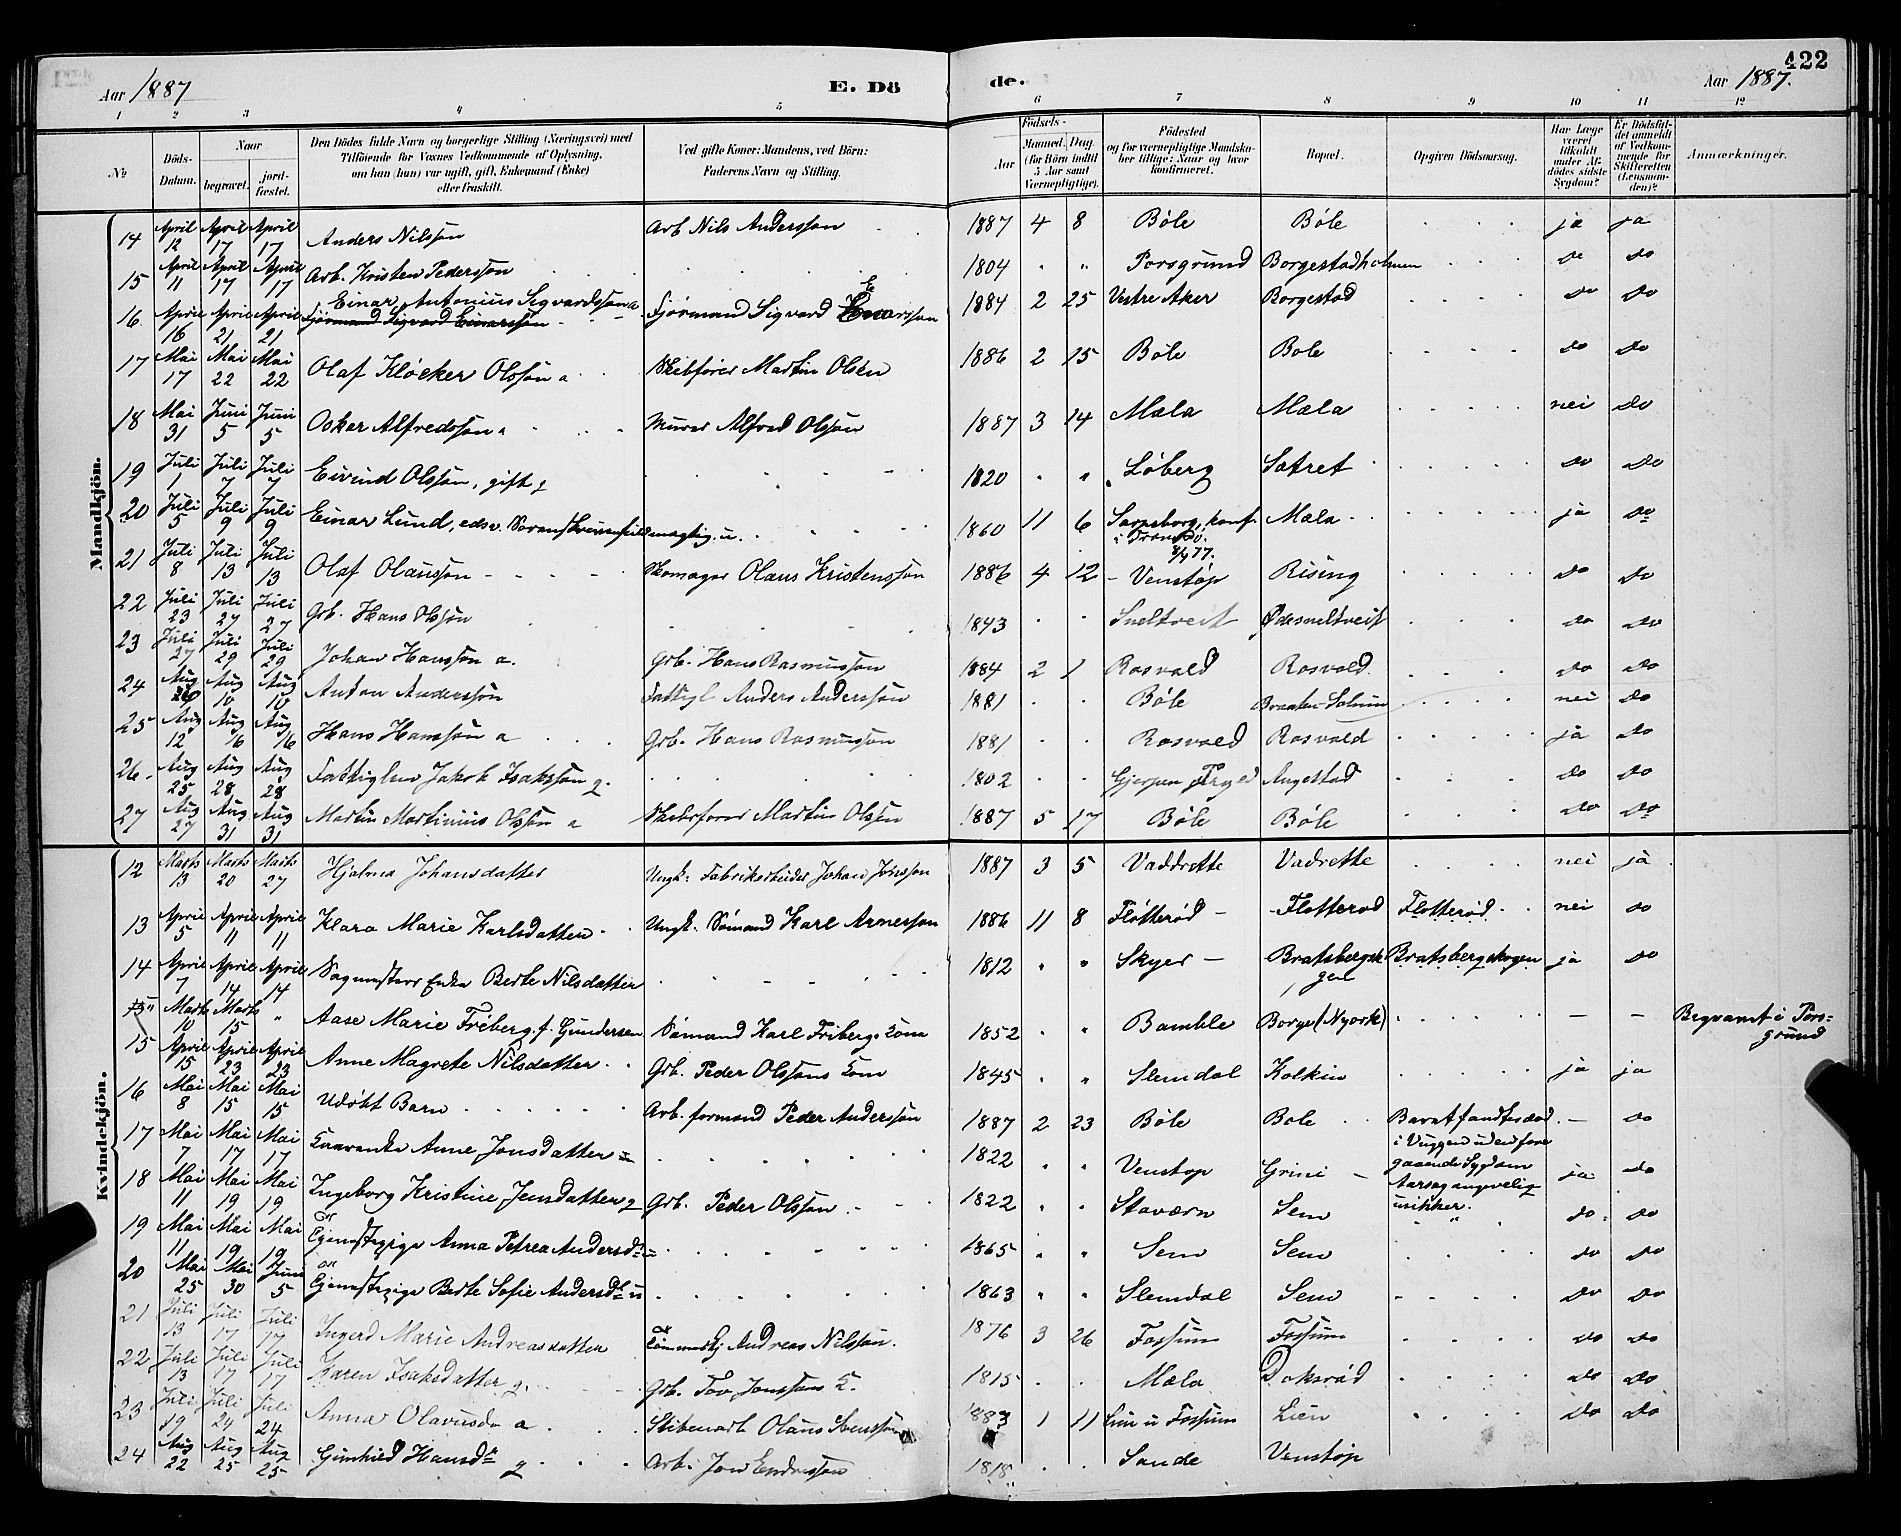 422
Aar 1887 E. Dö de. Aar 1887.
1 2 3 4 5 6 7 8 9 10 11 12
No Döds-Datum. Naar begravet. jordfæstet. Den Dödes fulde Navn og borgerlige Stilling (Næringsvei) med Tilföiende for Voxnes Vedkommende af Oplysning, om han (hun) var ugift, gift, Enkemand (Enke) eller fraskilt. Ved gifte Koner: Mandens, ved Börn: Faderens Navn og Stilling. Födsels- Aar Maaned. Dag (for Börn indtil 5 Aar samt Værnepligtige). Födested og for værnepligtige Mandskaber tillige: Naar og hvor konfirmeret. Bopæl. Opgiven Dödsaarsag. Har Læge været tilkaldt under Afdödes sidste Sygdom? Er Dödsfaldet anmeldt af Vedkommende for Skifteretten (Lensmanden)? Anmærkninger.
Mandkjön.
14 April 12 April 17 April 17 Anders Nilsson Arb Nils Andersson 1887 4 8 Böle Böle ja ja
15 April 11 April 17 April 17 Arb. Kristen Pedersson 1804 Porsgrund Borgestadholmen do do
16 April 16 April 21 April 21 Einar Antonius Sigvardsson a Fjørmand Sigvard Einarsson Fjørmand Sigvard Einarsson 1884 2 25 Vestre Aker Borgestad do do
17 Mai 17 Mai 22 Mai 22 Olaf Klöcker Olsson a Skibsfører Martin Olsen 1886 2 15 Böle Bole do do
18 Mai 31 Juni 5 Juni 5 Oskar Alfredsson a Murer Alfred Olsson 1887 3 14 Mæla Mæla nei do
19 Juli 1 Juli 7 Juli 7 Eivind Olsson, gift g 1820 Löberg Sætret do do
20 Juli 5 Juli 9 Juli 9 Einar Lund, edsv. Sorenskriverfuldmægtig. u. 1860 11 6 Sarpsborg, konf. i 77. Mæla ja do
21 Juli 8 Juli 13 Juli 13 Olaf Olausson Skomager Olaus Kristensson 1886 4 12 Venstøp Rising do do
22 Juli 23 Juli 27 Juli 27 Grb. Hans Olsson 1843 Sneltveit Ødesneltveit do do
23 Juli 27 Juli 29 Juli 29 Johan Hansson a. Grb. Hans Rasmusson 1884 2 1 Rosvald Rosvald do do
24 Aug Aug 10 Aug 10 Anton Andersson Fattigl Anders Andersson 1881 Böle Braaten-Solum nei do
25 Aug 12 Aug 16 Aug 16 Hans Hansson a Grb. Hans Rasmusson 1881 Rosvald Rosvald ja do
26 Aug 25 Aug 28 Aug 28 Fattiglem Jakob Isaksson g. 1802 Gjerpen Augestad do do
27 Aug 27 Aug 31 Aug 31 Martin Martinius Olsson a Skibsfører Martin Olsson 1887 5 17 Böle Böle do do
Kvindekjön.
12 Marts 13 Marts 20 Marts 27 Hjalma Johansdatter Ungk. Fabrikarbeider Johan 1887 3 5 Vaddrette Vadrette nei ja
13 April 5 April 11 April 11 Klara Marie Karlsdatter Ungk. Sömand Karl Arnesson 1886 11 8 Flötteröd Flotterod Flotteröd nei do
14 April 7 April 14 April 14 Enke Berte Nilsdatter 1812 Skyer Bratsbergskogen Bratsbergskogen ja do
15 Marts 10 Marts 15 " Aase Marie Friberg, f. Gundersen Sömand Karl Fribergs Kone 1852 Bamble Borge (Nyork) — — Begravet i Porsgrund
15 April 15 April 23 April 23 Anne Magrete Nilsdatter Grb. Peder Olssons Kone 1845 Slemdal Kolkin ja ja
16 Mai 8 Mai 15 Mai 15 Udøbt Barn Arb. formand Peder Andersson 1887 2 23 Böle Bole Barnet fandtes død i Vuggen uden foregaaende Sygdom Aarsag angivelig usikker. — do
17 Mai 7 Mai 17 Mai 17 Anne Jonsdatter 1822 Venstop Grini ja do
18 Mai 11 Mai 19 Mai 19 Ingeborg Kristine Jensdatter g Grb. Peder Olsson 1822 Staværn Sem do do
19 Mai 11 Mai 19 Mai 19 Anna Petrea Andersd. 1865 Sem Sem do do
20 Mai 25 Mai 30 Juni 5 Berte Sofie Andersd. u 1863 Slemdal Sem do do
21 Juli 13 Juli 17 Juli 17 Ingerd Marie Andreasdatter Andreas Nilsson. 1876 3 26 Fossum Fossum do do
22 Juli 13 Juli 17 Juli 17 Karen Isaksdatter g. Grb. Tov Jonssons K. 1815 Mæla Doksröd do do
23 Juli 19 Juli 24 Juli 24 Anna Olausda a Olaus 1883 1 11 Lien u Fossum Lien do do
24 Aug 22 Aug 25 Aug 25 Gunhild Hansdr g Arb. Jon Endresson 1818 Sande Venstøp